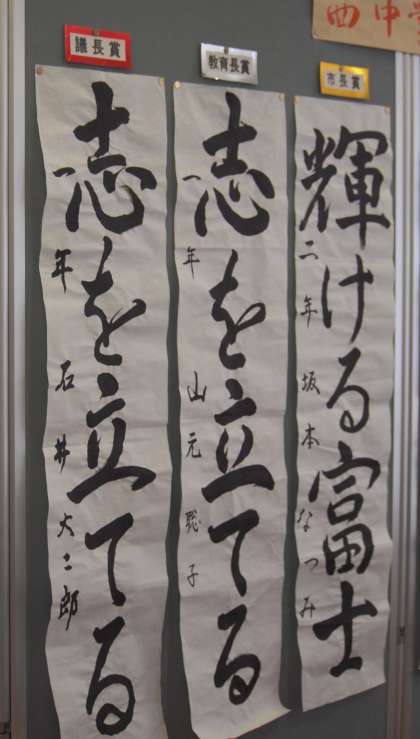 西中
市長賞
輝ける富士
二年 坂本なつみ
教育長賞
志を立てる
一年 山元聡子
議長賞
志を立てる
一年 石井大二郎